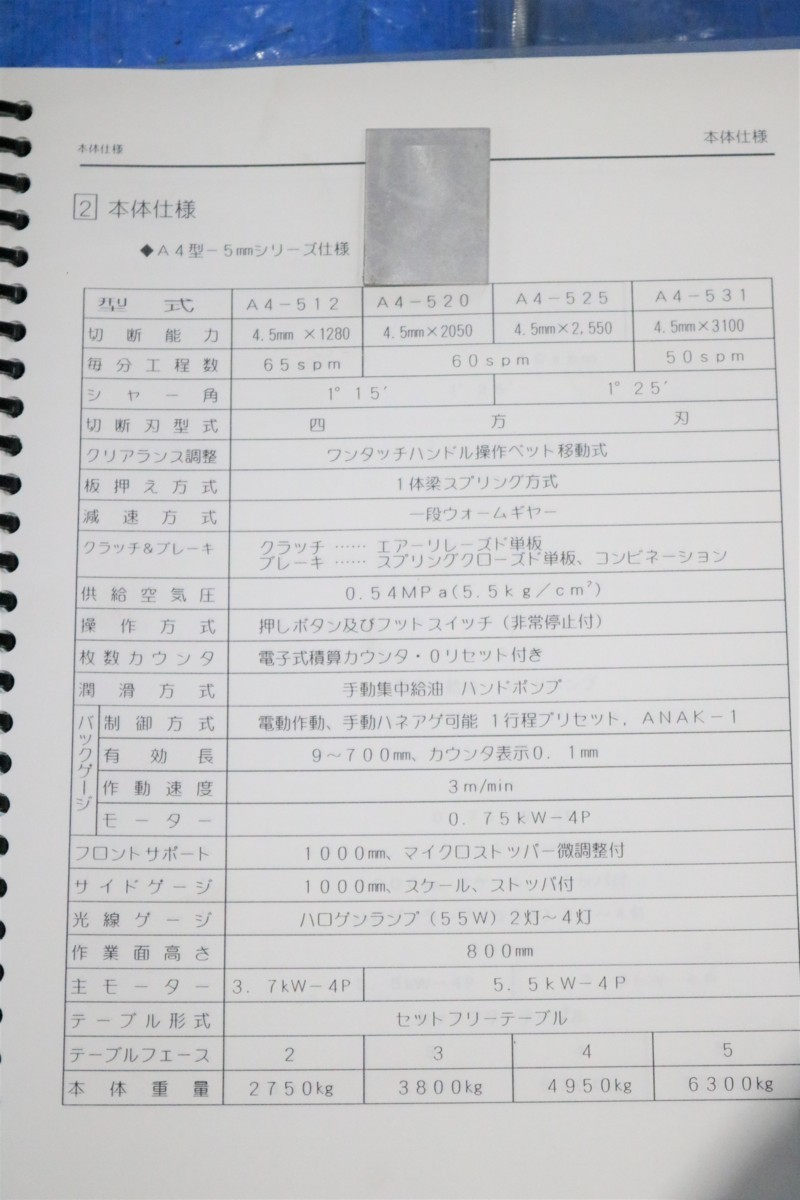 本体仕様
本体仕様
2 本体仕様
◆A4型－5mmシリーズ仕様
型式 A4－512 A4－520 A4－525 A4－531
切断能力 4.5mm×1280 4.5mm×2050 4.5mm×2,550 4.5mm×3100
毎分工程数 65spm 60spm 50spm
シャー角 1°15′ 1°25′
切断刃型式 四方刃
クリアランス調整 ワンタッチハンドル操作ベット移動式
板押え方式 1体梁スプリング方式
減速方式 一段ウォームギヤー
クラッチ＆ブレーキ クラッチ……エアーリレーズド単板
ブレーキ……スプリングクローズド単板、コンビネーション
供給空気圧 0.54MPa(5.5kg／cm²)
操作方式 押しボタン及びフットスイッチ（非常停止付）
枚数カウンタ 電子式積算カウンタ・0リセット付き
潤滑方式 手動集中給油 ハンドポンプ
バックゲージ 制御方式 電動作動、手動ハネアゲ可能 1行程プリセット，ANAK－1
有効長 9～700mm、カウンタ表示0.1mm
作動速度 3m/min
モーター 0.75kW－4P
フロントサポート 1000mm、マイクロストッパー微調整付
サイドゲージ 1000mm、スケール、ストッパ付
光線ゲージ ハロゲンランプ（55W）2灯～4灯
作業面高さ 800mm
主モーター 3.7kW－4P 5.5kW－4P
テーブル形式 セットフリーテーブル
テーブルフェース 2 3 4 5
本体重量 2750kg 3800kg 4950kg 6300kg